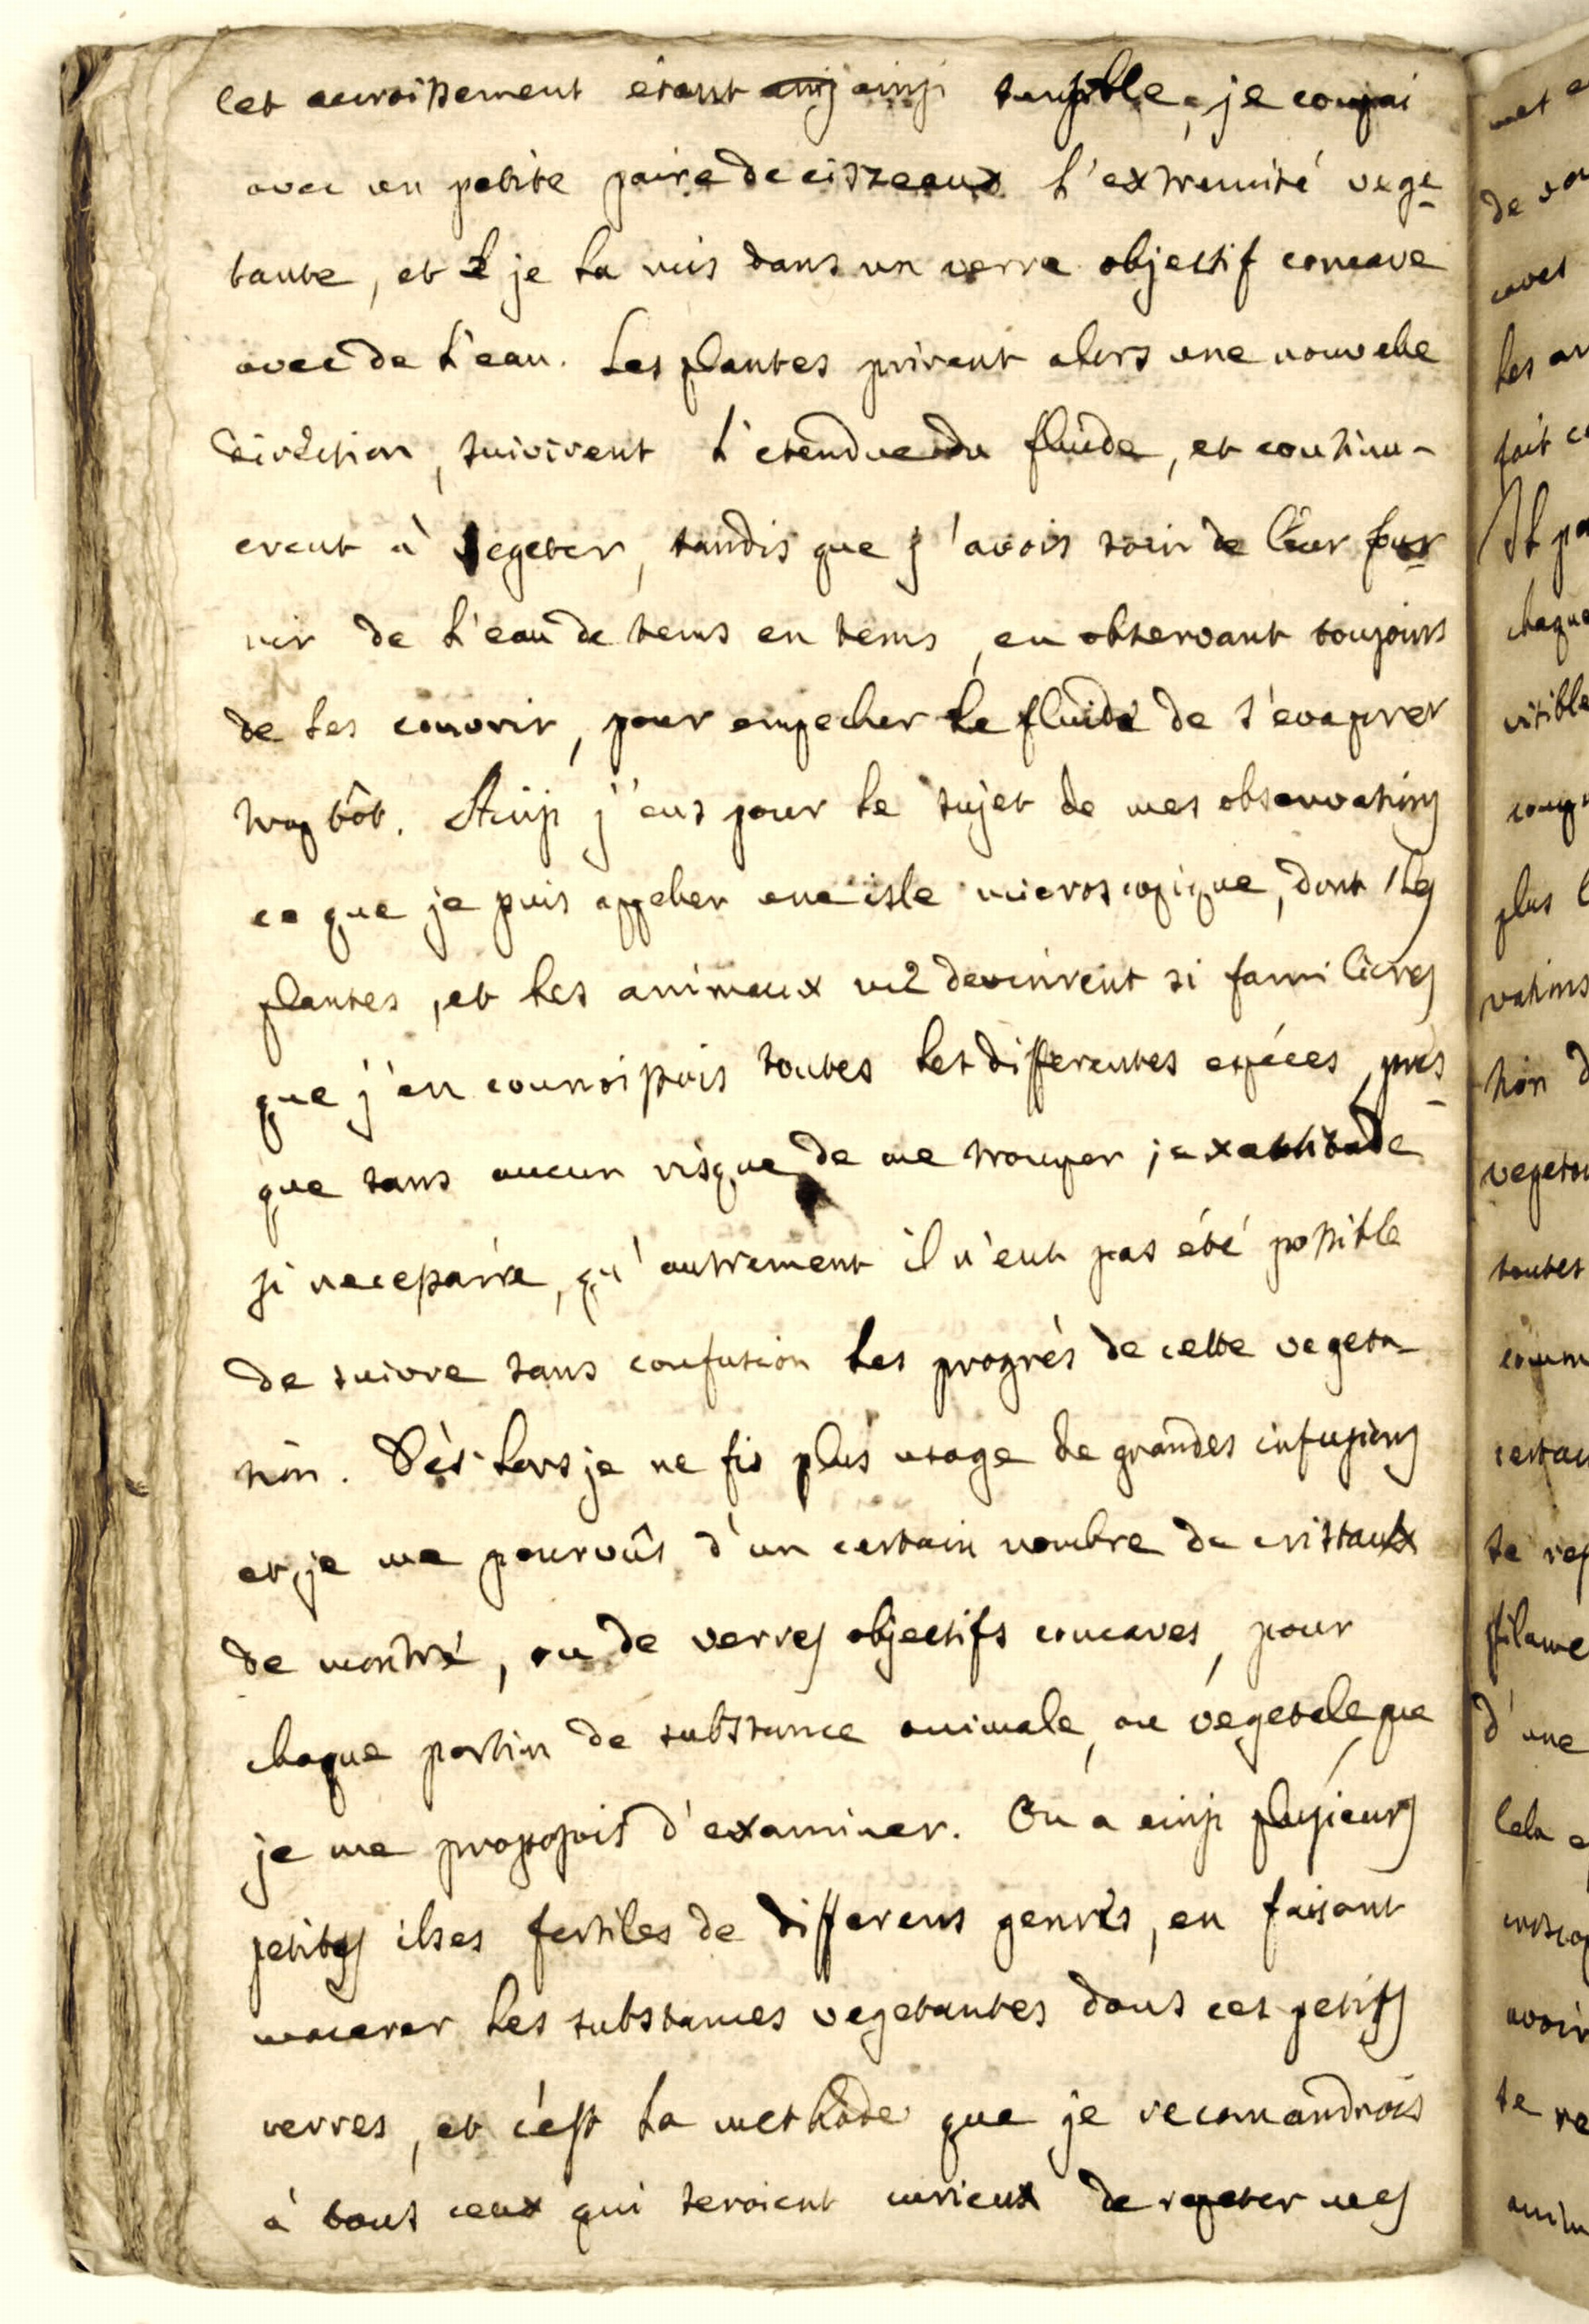 cet accroissement étant ainsi sensible, je coupai
avec un petite paire de ciszeaux l'extremité vege-
tante, et je la mis dans un verre objectif concave
avec de l'eau. Les plantes prirent alors une nouvelle
direction, suivirent l'etendue du fluide, et continu-
erent à vegeter, tandis que j'avois soin de leur four
nir de l'eau de tems en tems, en observant toujours
de les couvrir, pour empecher le fluide de s'evaporer
trop tôt. Ainsi j'eus pour le sujet de mes observations
ce que je puis appeler une isle microscopique, dont les
plantes, et les animaux me devinrent si familieres
que j'en connoissois toutes les differentes espéces, pres-
que sans aucun risque de me tromper; exactitude
si necessaire, qu'autrement il n'eut pas été possible
de suivre sans confusion les progrès de cette vegeta-
tion. Dès lors je ne fis plus usage de grandes infusions
et je me pourvûs d'un certain nombre de cristaux
de montre, ou de verres objectifs concaves, pour
chaque portion de substance animale, ou végetale, que
je me proposois d'examiner. On a ainsi plusieurs
petites ilses fertiles de differens genres, en faisant
macerer les substances vegetantes dans ces petits
verres, et c'est la methode que je recomandrois
à tous ceux qui seroient curieux de repeter mes